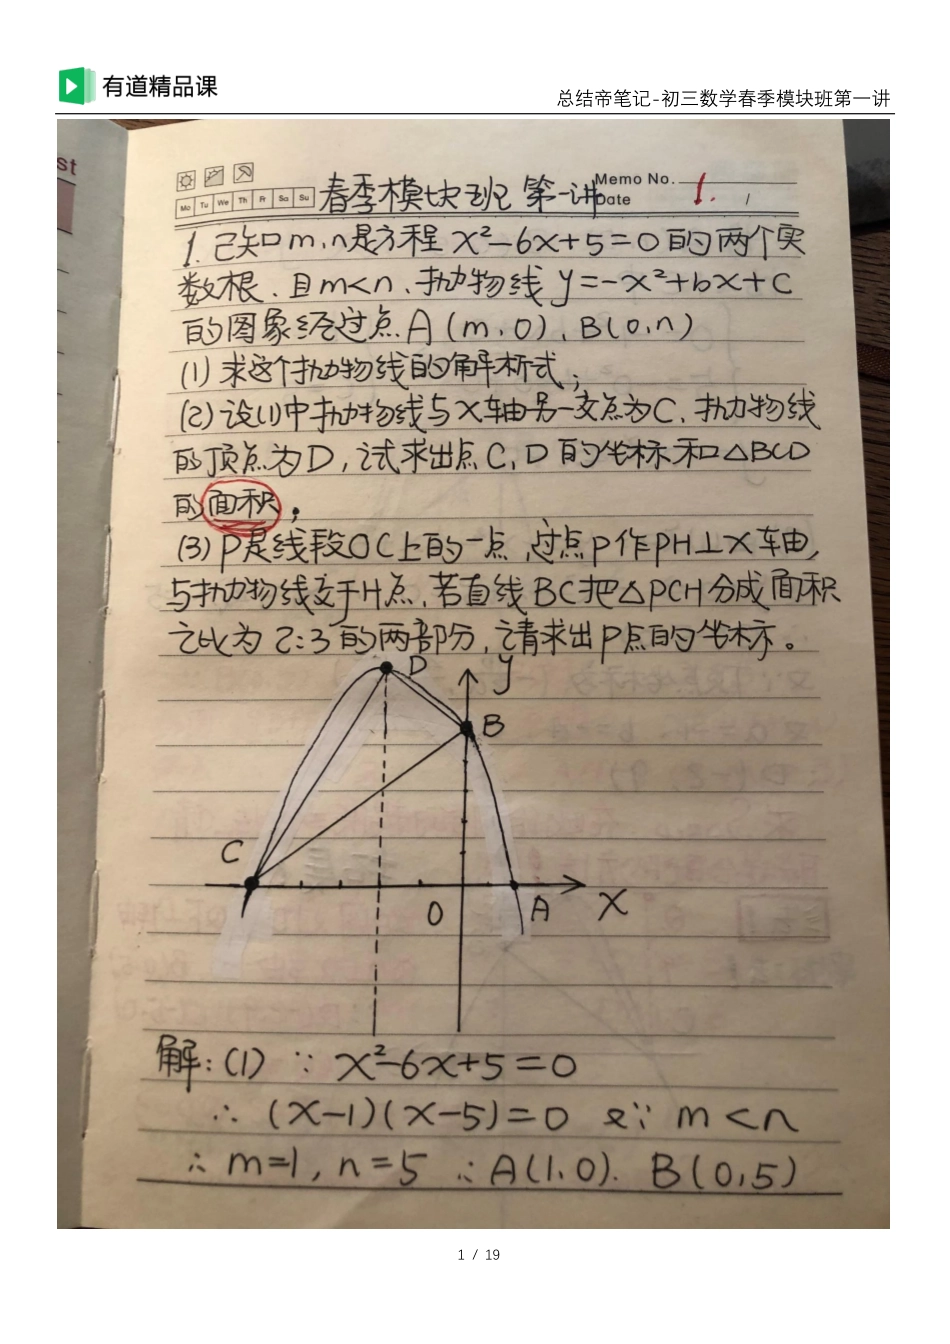 有道精品课
总结帝笔记-初三数学春季模块班第一讲
st
Memo No.
Mo Tu We Th Fr Sa Su
春季模块班 第一讲
1.
Date /
1.已知m,n是方程 x²-6x+5=0的两个实
数根、且m<n、抛物线 y=-x²+bx+c
的图象经过点A(m,0)、B(0,n)
(1)求这个抛物线的解析式;
(2)设(1)中抛物线与X轴另一交点为C、抛物线
的顶点为D,试求出点C,D的坐标和△BCD
的面积;
(3)P是线段OC上的一点,过点P作PH⊥X车由,
与抛物线交于H点、若直线BC把△PCH分成面积
之比为2:3的两部分,请求出P点的坐标。
D y
B
C
O A X
解:(1) ∵ x²-6x+5=0
∴ (x-1)(x-5)=0 又∵ m<n
∴ m=1, n=5 ∴A(1,0). B(0,5)
1 / 19